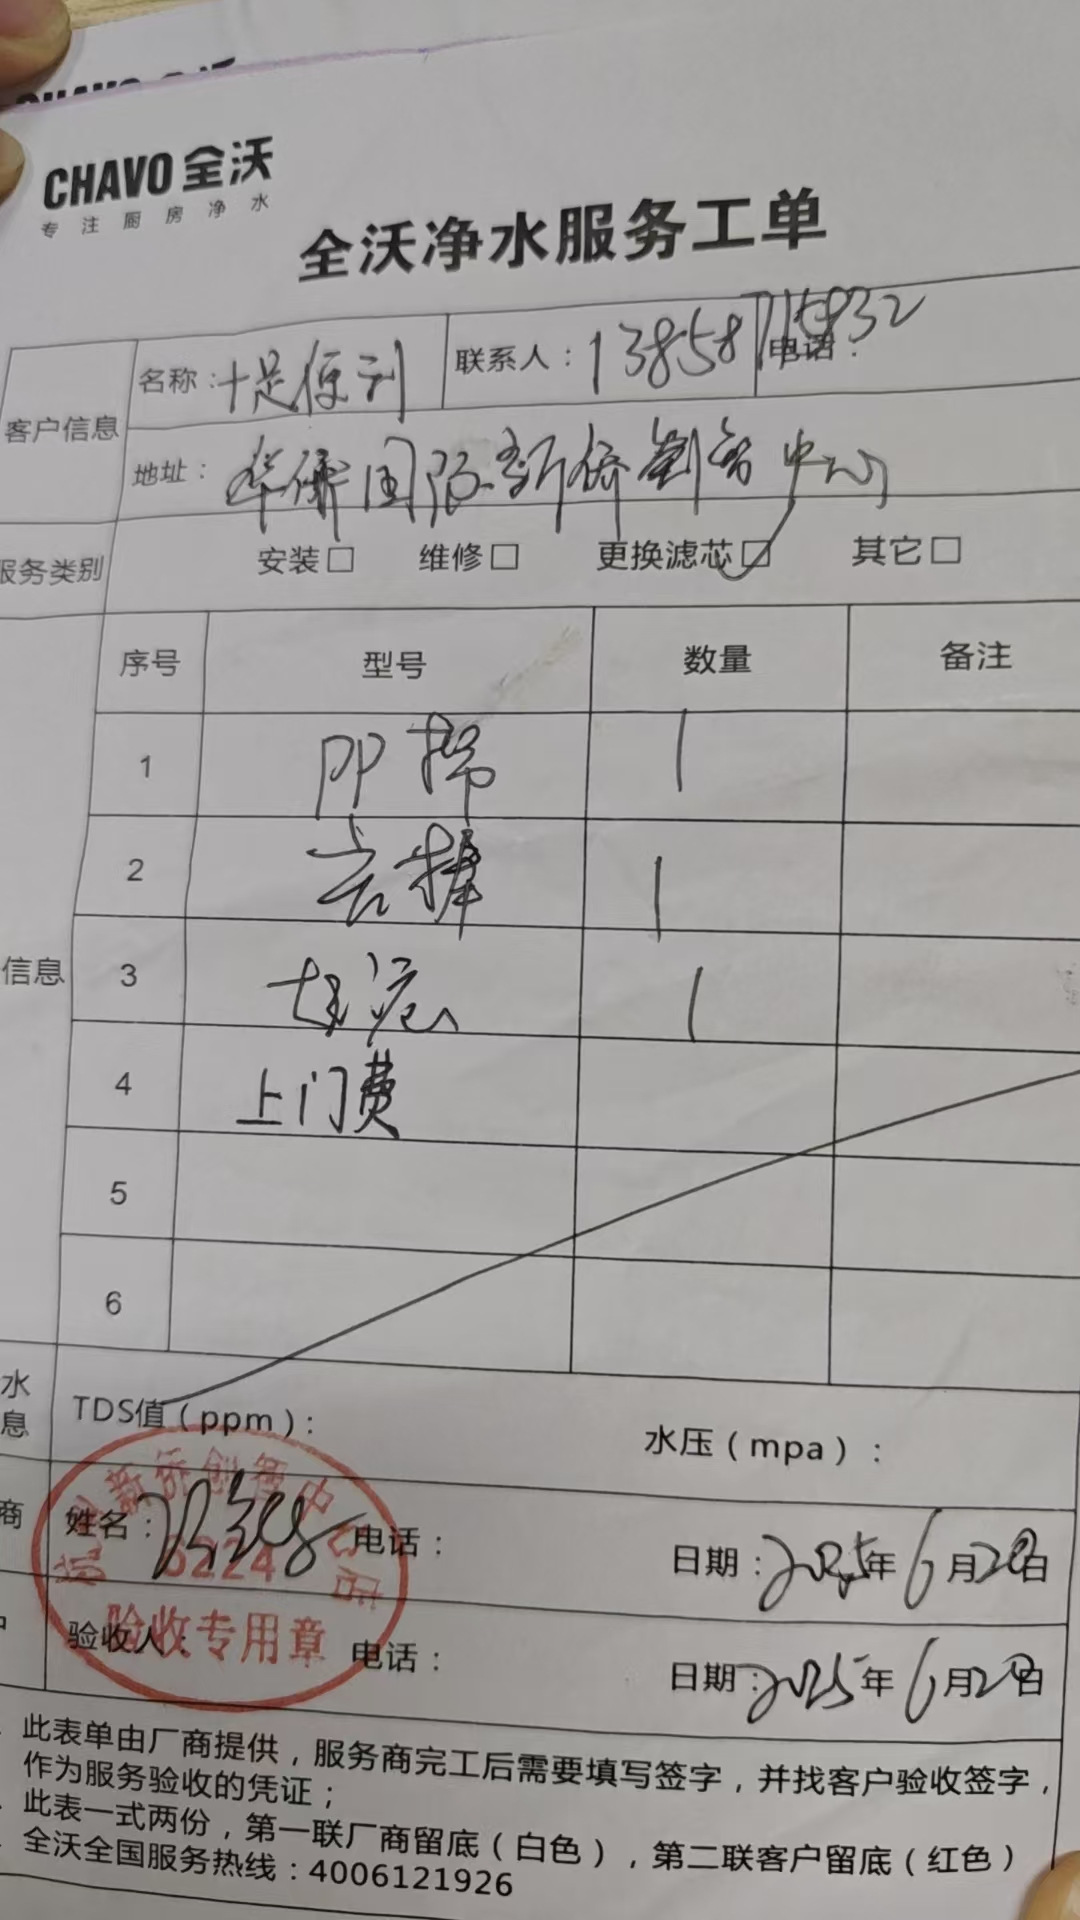 CHAVO 全沃
CHAVO 全沃
专注厨房净水
全沃净水服务工单
客户信息
名称：十足便利
联系人：13858715832
电话：
地址：华侨国际新侨创智中心
服务类别
安装□ 维修□ 更换滤芯☑ 其它□
信息
序号 型号 数量 备注
1 PP棉 1
2 炭棒 1
3 超滤 1
4 上门费
5
6
水
息
TDS值（ppm）： 水压（mpa）：
商
姓名： 电话： 日期：2025年6月20日
验收人： 电话： 日期：2025年6月20日
新侨创智中心店
验收专用章
此表单由厂商提供，服务商完工后需要填写签字，并找客户验收签字，
作为服务验收的凭证；
此表一式两份，第一联厂商留底（白色），第二联客户留底（红色）
全沃全国服务热线：4006121926